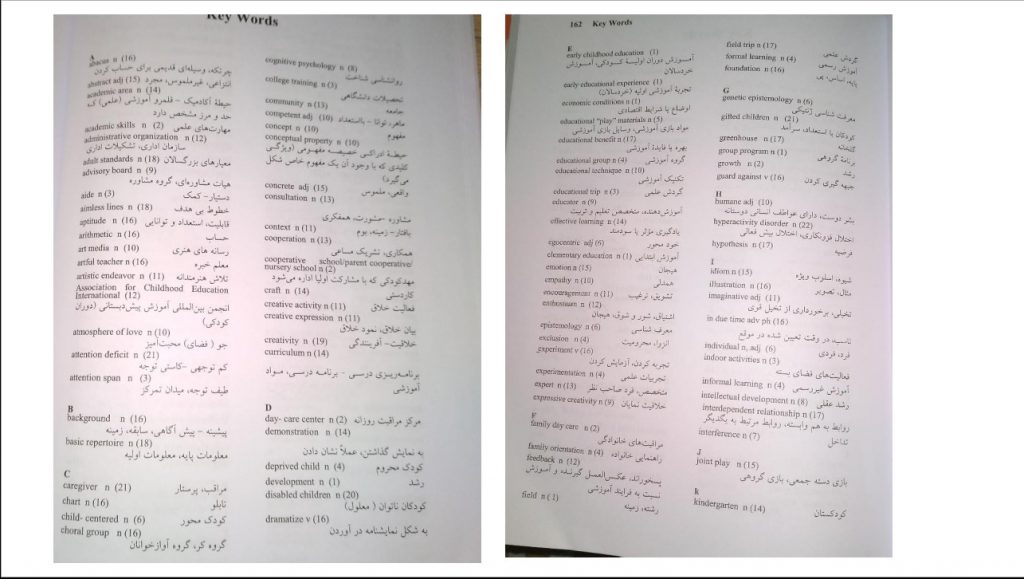 Key Words
A
abacus n (16)
چرتکه، وسیله‌ای قدیمی برای حساب کردن
abstract adj (15) انتزاعی، غیرملموس، مجرد
academic area n (14)
حیطهٔ آکادمیک - قلمرو آموزشی (علمی) که
حد و مرز مشخص دارد
academic skills n (2) مهارت‌های علمی
administrative organization n (12)
سازمان اداری، تشکیلات اداری
adult standards n (18) معیارهای بزرگسالان
advisory board n (9)
هیات مشاوره‌ای، گروه مشاوره
aide n (3) دستیار- کمک
aimless lines n (18) خطوط بی هدف
aptitude n (16) قابلیت، استعداد و توانایی
arithmetic n (16) حساب
art media n (10) رسانه های هنری
artful teacher n (16) معلم خبره
artistic endeavor n (11) تلاش هنرمندانه
Association for Childhood Education
International (12)
انجمن بین‌المللی آموزش پیش‌دبستانی (دوران
کودکی)
atmosphere of love n (10)
جو ( فضای) محبت‌آمیز
attention deficit n (21)
کم توجهی -کاستی توجه
attention span n (3)
طیف توجه، میدان تمرکز
B
background n (16)
پیشینه - پیش آگاهی، سابقه، زمینه
basic repertoire n (18)
معلومات پایه، معلومات اولیه
C
caregiver n (21) مراقب، پرستار
chart n (16) تابلو
child- centered n (6) کودک محور
choral group n (16)
گروه کر، گروه آوازخوانان
cognitive psychology n (8)
روانشناسی شناخت
college training n (3)
تحصیلات دانشگاهی
community n (13) جامعه
competent adj (10) ماهر، توانا - بااستعداد
concept n (10) مفهوم
conceptual property n (10)
حیطهٔ ادراکی خصیصه مفهومی (ویژگی
کلیدی که با وجود آن یک مفهوم خاص شکل
می‌گیرد)
concrete adj (15) واقعی، ملموس
consultation n (13)
مشاوره -مشورت، همفکری
context n (11) بافتار- زمینه، بوم
cooperation n (13)
همکاری، تشریک مساعی
cooperative school/parent cooperative/
nursery school n (2)
مهدکودکی که با مشارکت اولیا اداره می‌شود
craft n (14) کاردستی
creative activity n (11) فعالیت خلاق
creative expression n (11)
بیان خلاق، نمود خلاق
creativity n (19) خلاقیت- آفرینندگی
curriculum n (14)
برنامه‌ریزی درسی - برنامه درسی، مواد
آموزشی
D
day- care center n (2) مرکز مراقبت روزانه
demonstration n (14)
به نمایش گذاشتن، عملاً نشان دادن
deprived child n (4) کودک محروم
development n (1) رشد
disabled children n (20)
کودکان ناتوان ( معلول)
dramatize v (16)
به شکل نمایشنامه در آوردن
162 Key Words
E
early childhood education (1)
آموزش دوران اولیهٔ کودکی، آموزش
خردسالان
early educational experience (1)
تجربهٔ آموزشی اولیه (خردسالان)
economic conditions n (1)
اوضاع یا شرایط اقتصادی
educational "play" materials n (5)
مواد بازی آموزشی، وسایل بازی آموزشی
educational benefit n (17)
بهره یا فایدهٔ آموزشی
educational group n (4) گروه آموزشی
educational technique n (10)
تکنیک آموزشی
educational trip n (3) گردش علمی
educator n (9)
آموزش‌دهنده، متخصص تعلیم و تربیت
effective learning n (14)
یادگیری مؤثر یا سودمند
egocentric adj (6) خود محور
elementary education n (1) آموزش ابتدایی
emotion n (15) هیجان
empathy n (10) همدلی
encouragement n (11) تشویق، ترغیب
enthusiasm n (12)
اشتیاق، شور و شوق، هیجان
epistemology n (6) معرف شناسی
exclusion n (4) انزوا، محرومیت
experiment v (16)
تجربه کردن، آزمایش کردن
experimentation n (4) تجربیات علمی
expert n (13) متخصص، فرد صاحب نظر
expressive creativity n (9) خلاقیت نمایان
F
family day care n (2)
مراقبت‌های خانوادگی
family orientation n (4) راهنمایی خانواده
feedback n (12)
پسخورند، عکس‌العمل گیرنده و آموزش
نسبت به فرایند آموزشی
field n (1) رشته، زمینه
field trip n (17) گردش علمی
formal learning n (4) آموزش رسمی
foundation n (16) پایه، اساس، پی
G
genetic epistemology n (6)
معرفت شناسی ژنتیکی
gifted children n (21)
کودکان با استعداد، سرآمد
greenhouse n (17) گلخانه
group program n (1) برنامهٔ گروهی
growth n (2) رشد
guard against v (16) جبهه گیری کردن
H
humane adj (10)
بشر دوست، دارای عواطف انسانی دوستانه
hyperactivity disorder n (22)
اختلال فزونکاری، اختلال بیش فعالی
hypothesis n (17) فرضیه
I
idiom n (15) شیوه، اسلوب ویژه
illustration n (16) مثال، تصویر
imaginative adj (11)
تخیلی، برخورداری از تخیل قوی
in due time adv ph (16)
در وقت تعیین شده در موقع
individual n, adj (6) فرد، فردی
indoor activities n (3)
فعالیت‌های فضای بسته
informal learning n (4) آموزش غیررسمی
intellectual development n (8) رشد عقلی
interdependent relationship n (17)
روابط به هم وابسته، روابط مرتبط به یکدیگر
interference n (7) تداخل
J
joint play n (15)
بازی دسته جمعی، بازی گروهی
k
kindergarten n (14) کودکستان